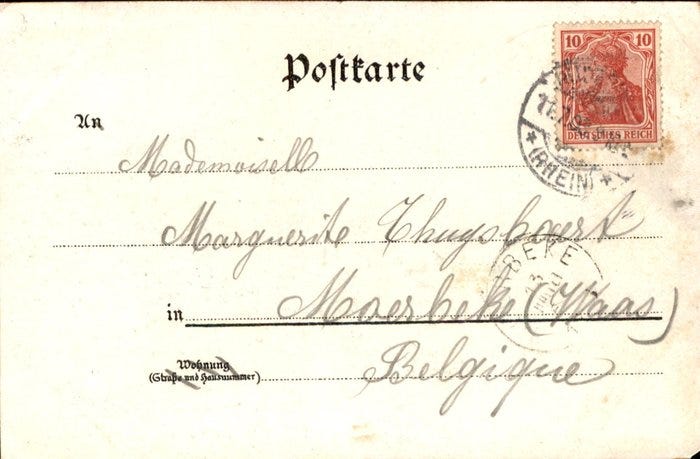 Postkarte
10 10
DEUTSCHES REICH
An
(RHEIN)
Mademoisell
Marguerite Thuysbaert
BEKE
in Moerbeke (Waas)
Wohnung
(Straße und Hausnummer)
Belgique